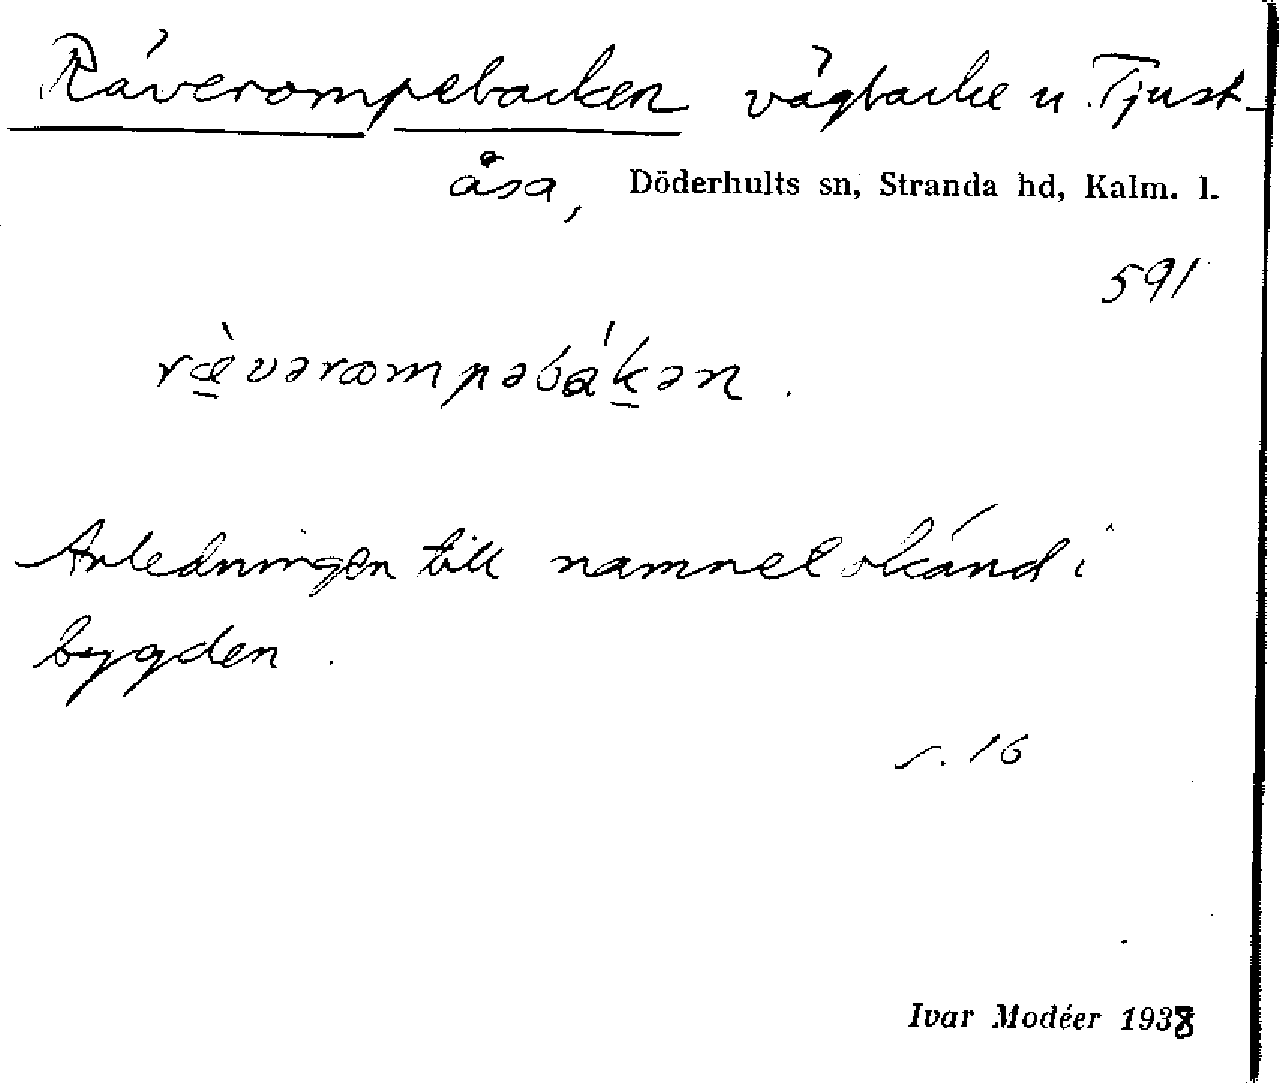 Räverompebacken vägbacke u Tjust-
åsa, Döderhults sn, Stranda hd, Kalm. l.
591
ræ̀vərompəbákən.
Anledningen till namnet okänd i
bygden.
s. 16
Ivar Modéer 1938